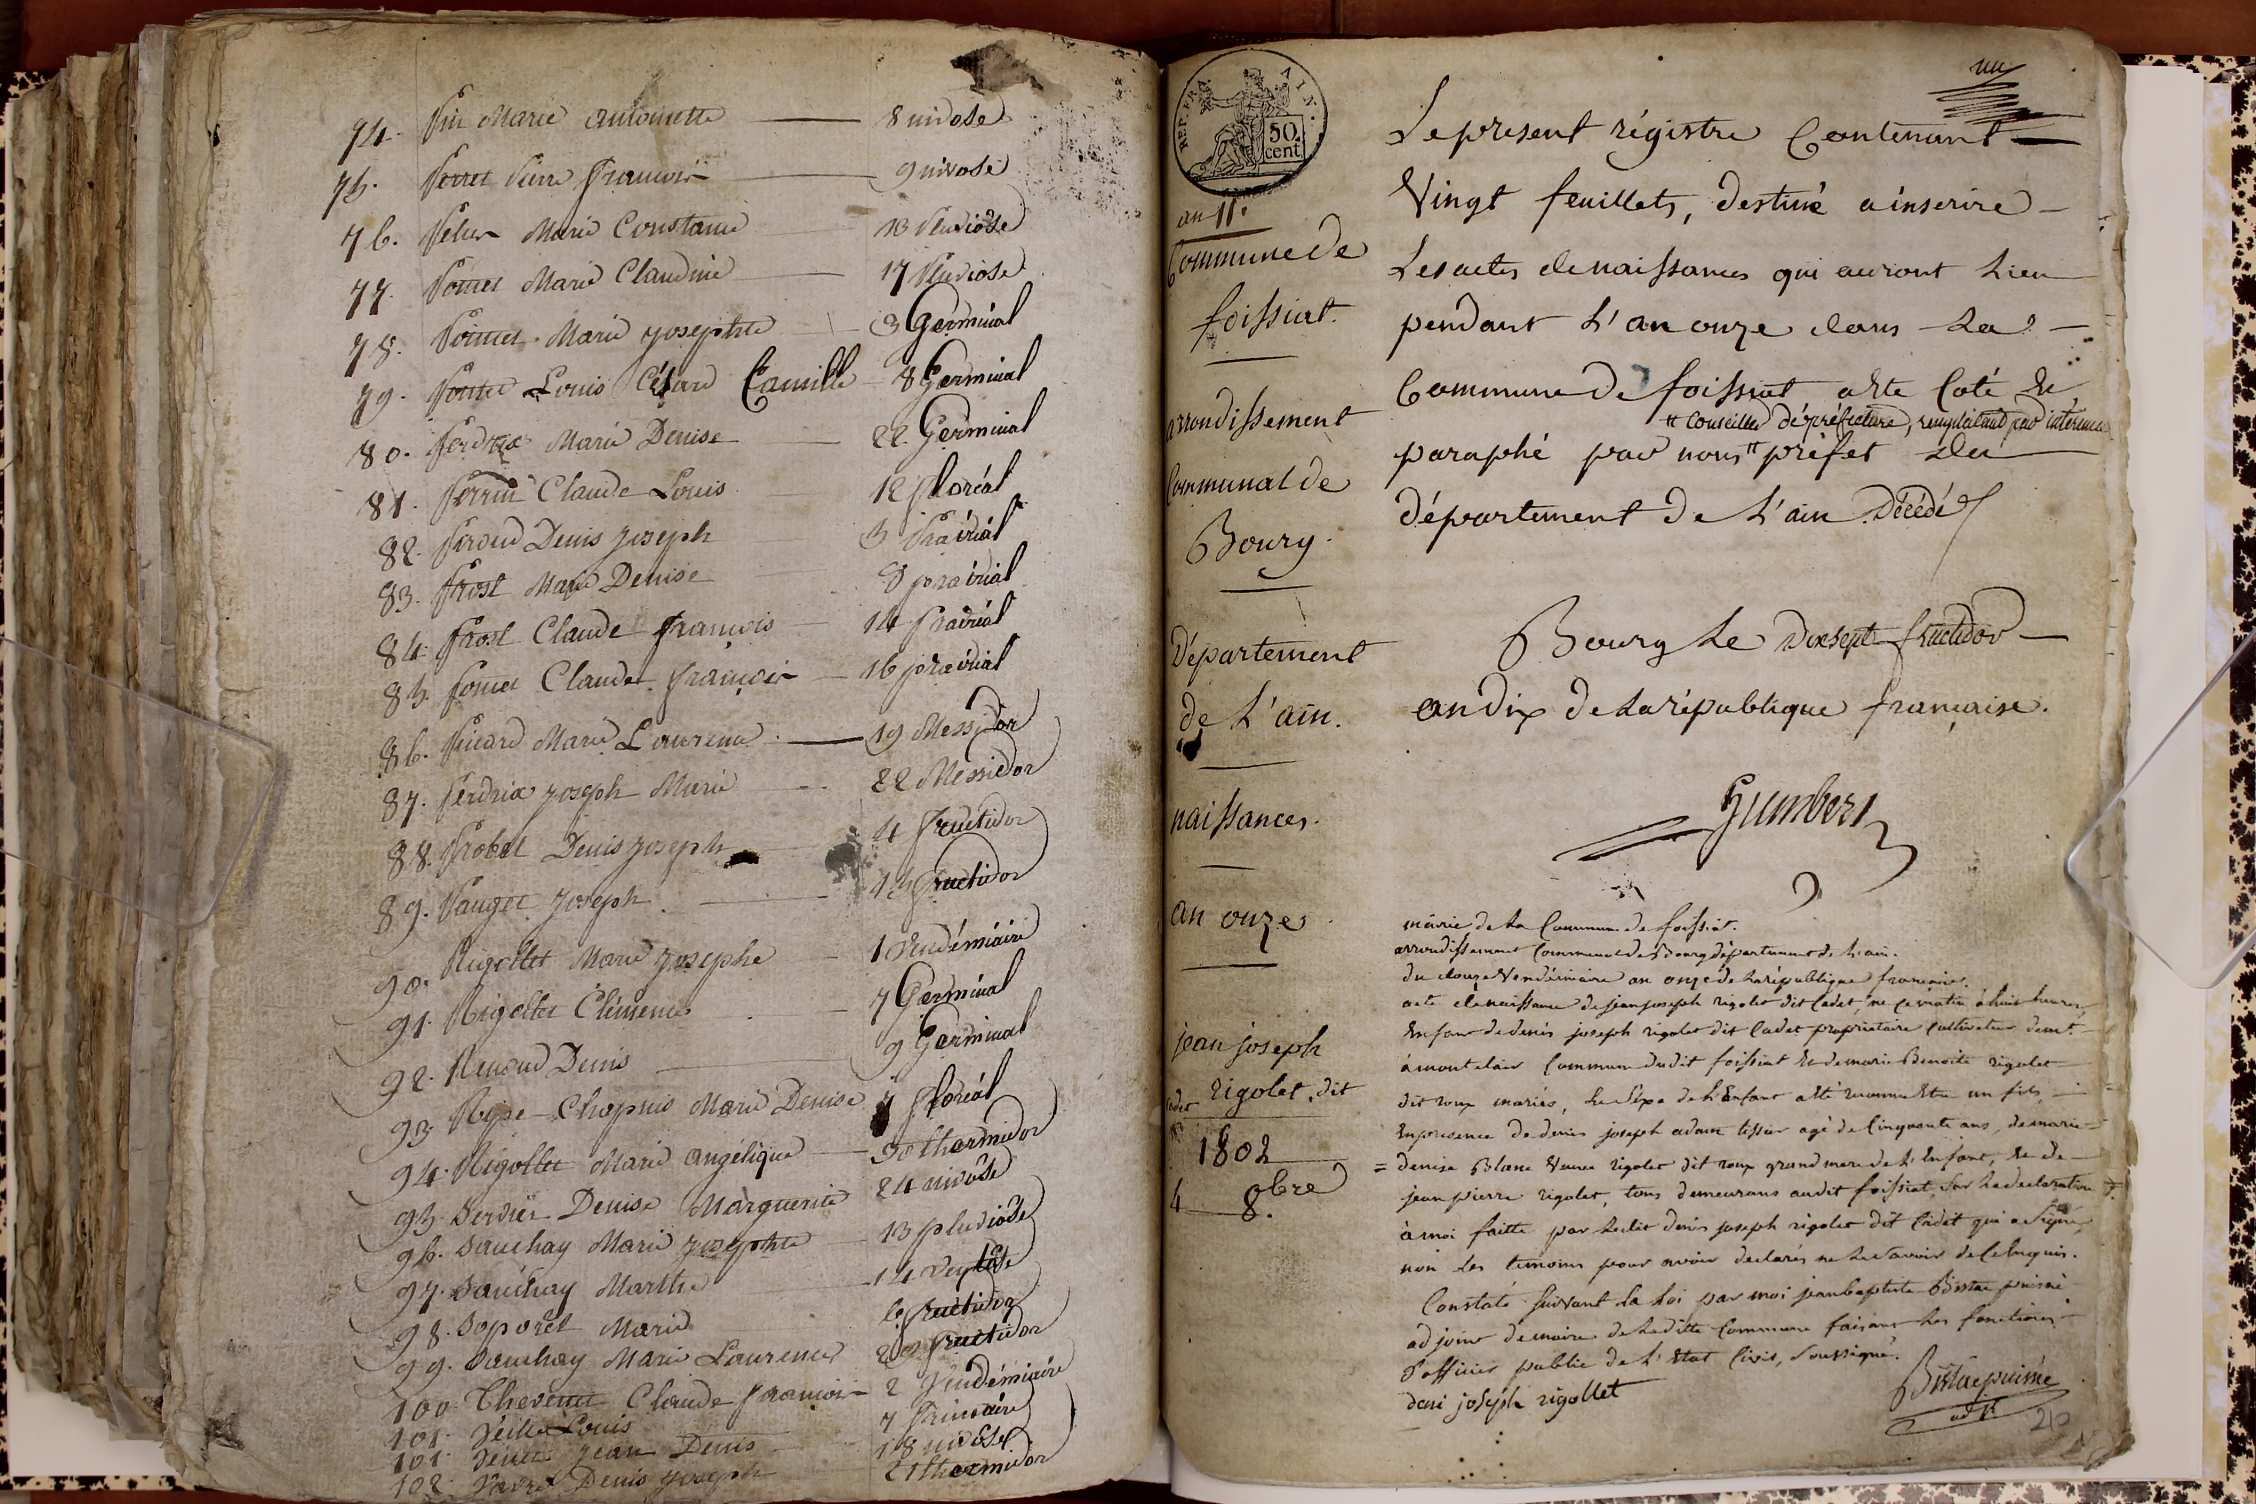 74. Pin Marie antoinette 8 nivose
75. Perret Pierre françois 9 nivose
76. Marie Constance 13 Pluviôse
77. Poncet Marie Claudine 17 Pluviose
78. Poncet Marie josephte 3 Germinal
79. Poncet Louis César Camille 8 Germinal
80. Perdrix Marie Denise 22 Germinal
81. Perrin Claude Louis 12 floréal
82. Perdrix Denis joseph 3 Prairial
83. Prost Marie Denise 8 prairial
84. Prost Claude françois 14 Prairial
85. Poncet Claude françois 16 prairial
86. Picard Marie Laurence 19 Messidor
87. Perdrix joseph Marie 22 Messidor
88. Probel Denis joseph 4 fructidor
89. Pauget joseph 13 fructidor
90. Rigollet Marie josephe 1 Vendémiaire
91. Rigollet Clémence 7 Germinal
92. Renoud Denis 9 Germinal
93. Chapuis Marie Denise 7 floréal
94. Rigollet Marie angélique 30 thermidor
95. Denise Marguerite 24 nivôse
96. Sauchay Marie josephte 13 pluviôse
97. Sauchay Marthe 14 ventôse
98. Marie 6 fructidor
99. Sauchay Marie Laurence 20 fructidor
100. Thevenet Claude françois 2 Vendémiaire
101. Louis 7 frimaire
101. jean Denis 18 nivôse
102. Denis joseph 21 thermidor
REP. FRA. AIN.
50. cent.
an 11.
Commune de
foissiat.
arrondissement
Communal de
Bourg.
Département
de L'ain.
naissances.
an onze
jean joseph
rigolet, dit
cadet
1802
4 8.bre
un
Le present régistre Contenant
Vingt feuillets, destiné a inserire
Les actes de naissances qui auront Lieu
pendant L'an onze dans La
Commune de foissiat a été Coté et
" Conseiller de préfecture, remplaçant par interim le
paraphé par nous " préfet du
département de L'ain. Décédé
Bourg Le Dixsept fructidor
an Dix De La république française.
mairie de La Commune de foissiat.
arrondissement Communal de Bourg département de L'ain.
du douze Vendémiaire an onze de La république française.
acte de naissance de jean joseph rigolet dit Cadet, né ce matin à huit heures,
Enfant de denis joseph rigolet dit Cadet propriétaire Cultivateur demt.
à montclair Commune dudit foissiat et de marie Benoite rigolet
dit roux mariés, Le Sexe de L'Enfant a été reconnu Etre un fils,
En presence de denis joseph adam tissier agé de Cinquante ans, de marie
denise Blanc Veuve rigolet dit roux grand mere de L'Enfant, et de
jean pierre rigolet, tous demeurans audit foissiat, sur La declaration
à moi faitte par Ledit denis joseph rigolet dit Cadet qui a signé
non les temoins pour avoir declarés ne Le savoir de Ce Enquis.
Constaté suivant La Loi par moi jean baptiste puisné
adjoint de maire de Laditte Commune faisant les fonctions
d'officier public de L'Etat Civil, soussigné.
deni joséph rigollet
puisné
adt.
210